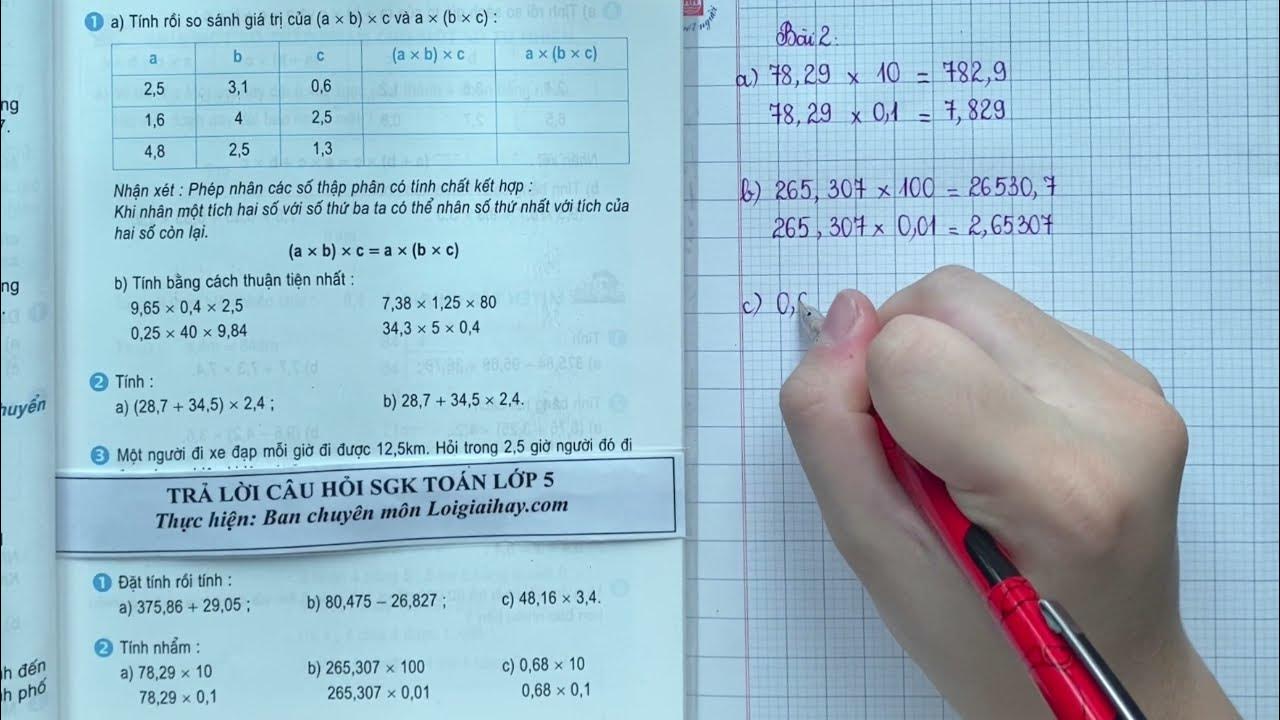 ng
7.
ng
huyển
nh đến
nh phố
1 a) Tính rồi so sánh giá trị của (a × b) × c và a × (b × c) :
a b c (a × b) × c a × (b × c)
2,5 3,1 0,6
1,6 4 2,5
4,8 2,5 1,3
Nhận xét : Phép nhân các số thập phân có tính chất kết hợp :
Khi nhân một tích hai số với số thứ ba ta có thể nhân số thứ nhất với tích của
hai số còn lại.
(a × b) × c = a × (b × c)
b) Tính bằng cách thuận tiện nhất :
9,65 × 0,4 × 2,5 7,38 × 1,25 × 80
0,25 × 40 × 9,84 34,3 × 5 × 0,4
2 Tính :
a) (28,7 + 34,5) × 2,4 ; b) 28,7 + 34,5 × 2,4.
3 Một người đi xe đạp mỗi giờ đi được 12,5km. Hỏi trong 2,5 giờ người đó đi
TRẢ LỜI CÂU HỎI SGK TOÁN LỚP 5
Thực hiện: Ban chuyên môn Loigiaihay.com
1 Đặt tính rồi tính :
a) 375,86 + 29,05 ; b) 80,475 – 26,827 ; c) 48,16 × 3,4.
2 Tính nhẩm :
a) 78,29 × 10 b) 265,307 × 100 c) 0,68 × 10
78,29 × 0,1 265,307 × 0,01 0,68 × 0,1
Bài 2:
a) 78,29 × 10 = 782,9
78,29 × 0,1 = 7,829
b) 265,307 × 100 = 26530,7
265,307 × 0,01 = 2,65307
c) 0,